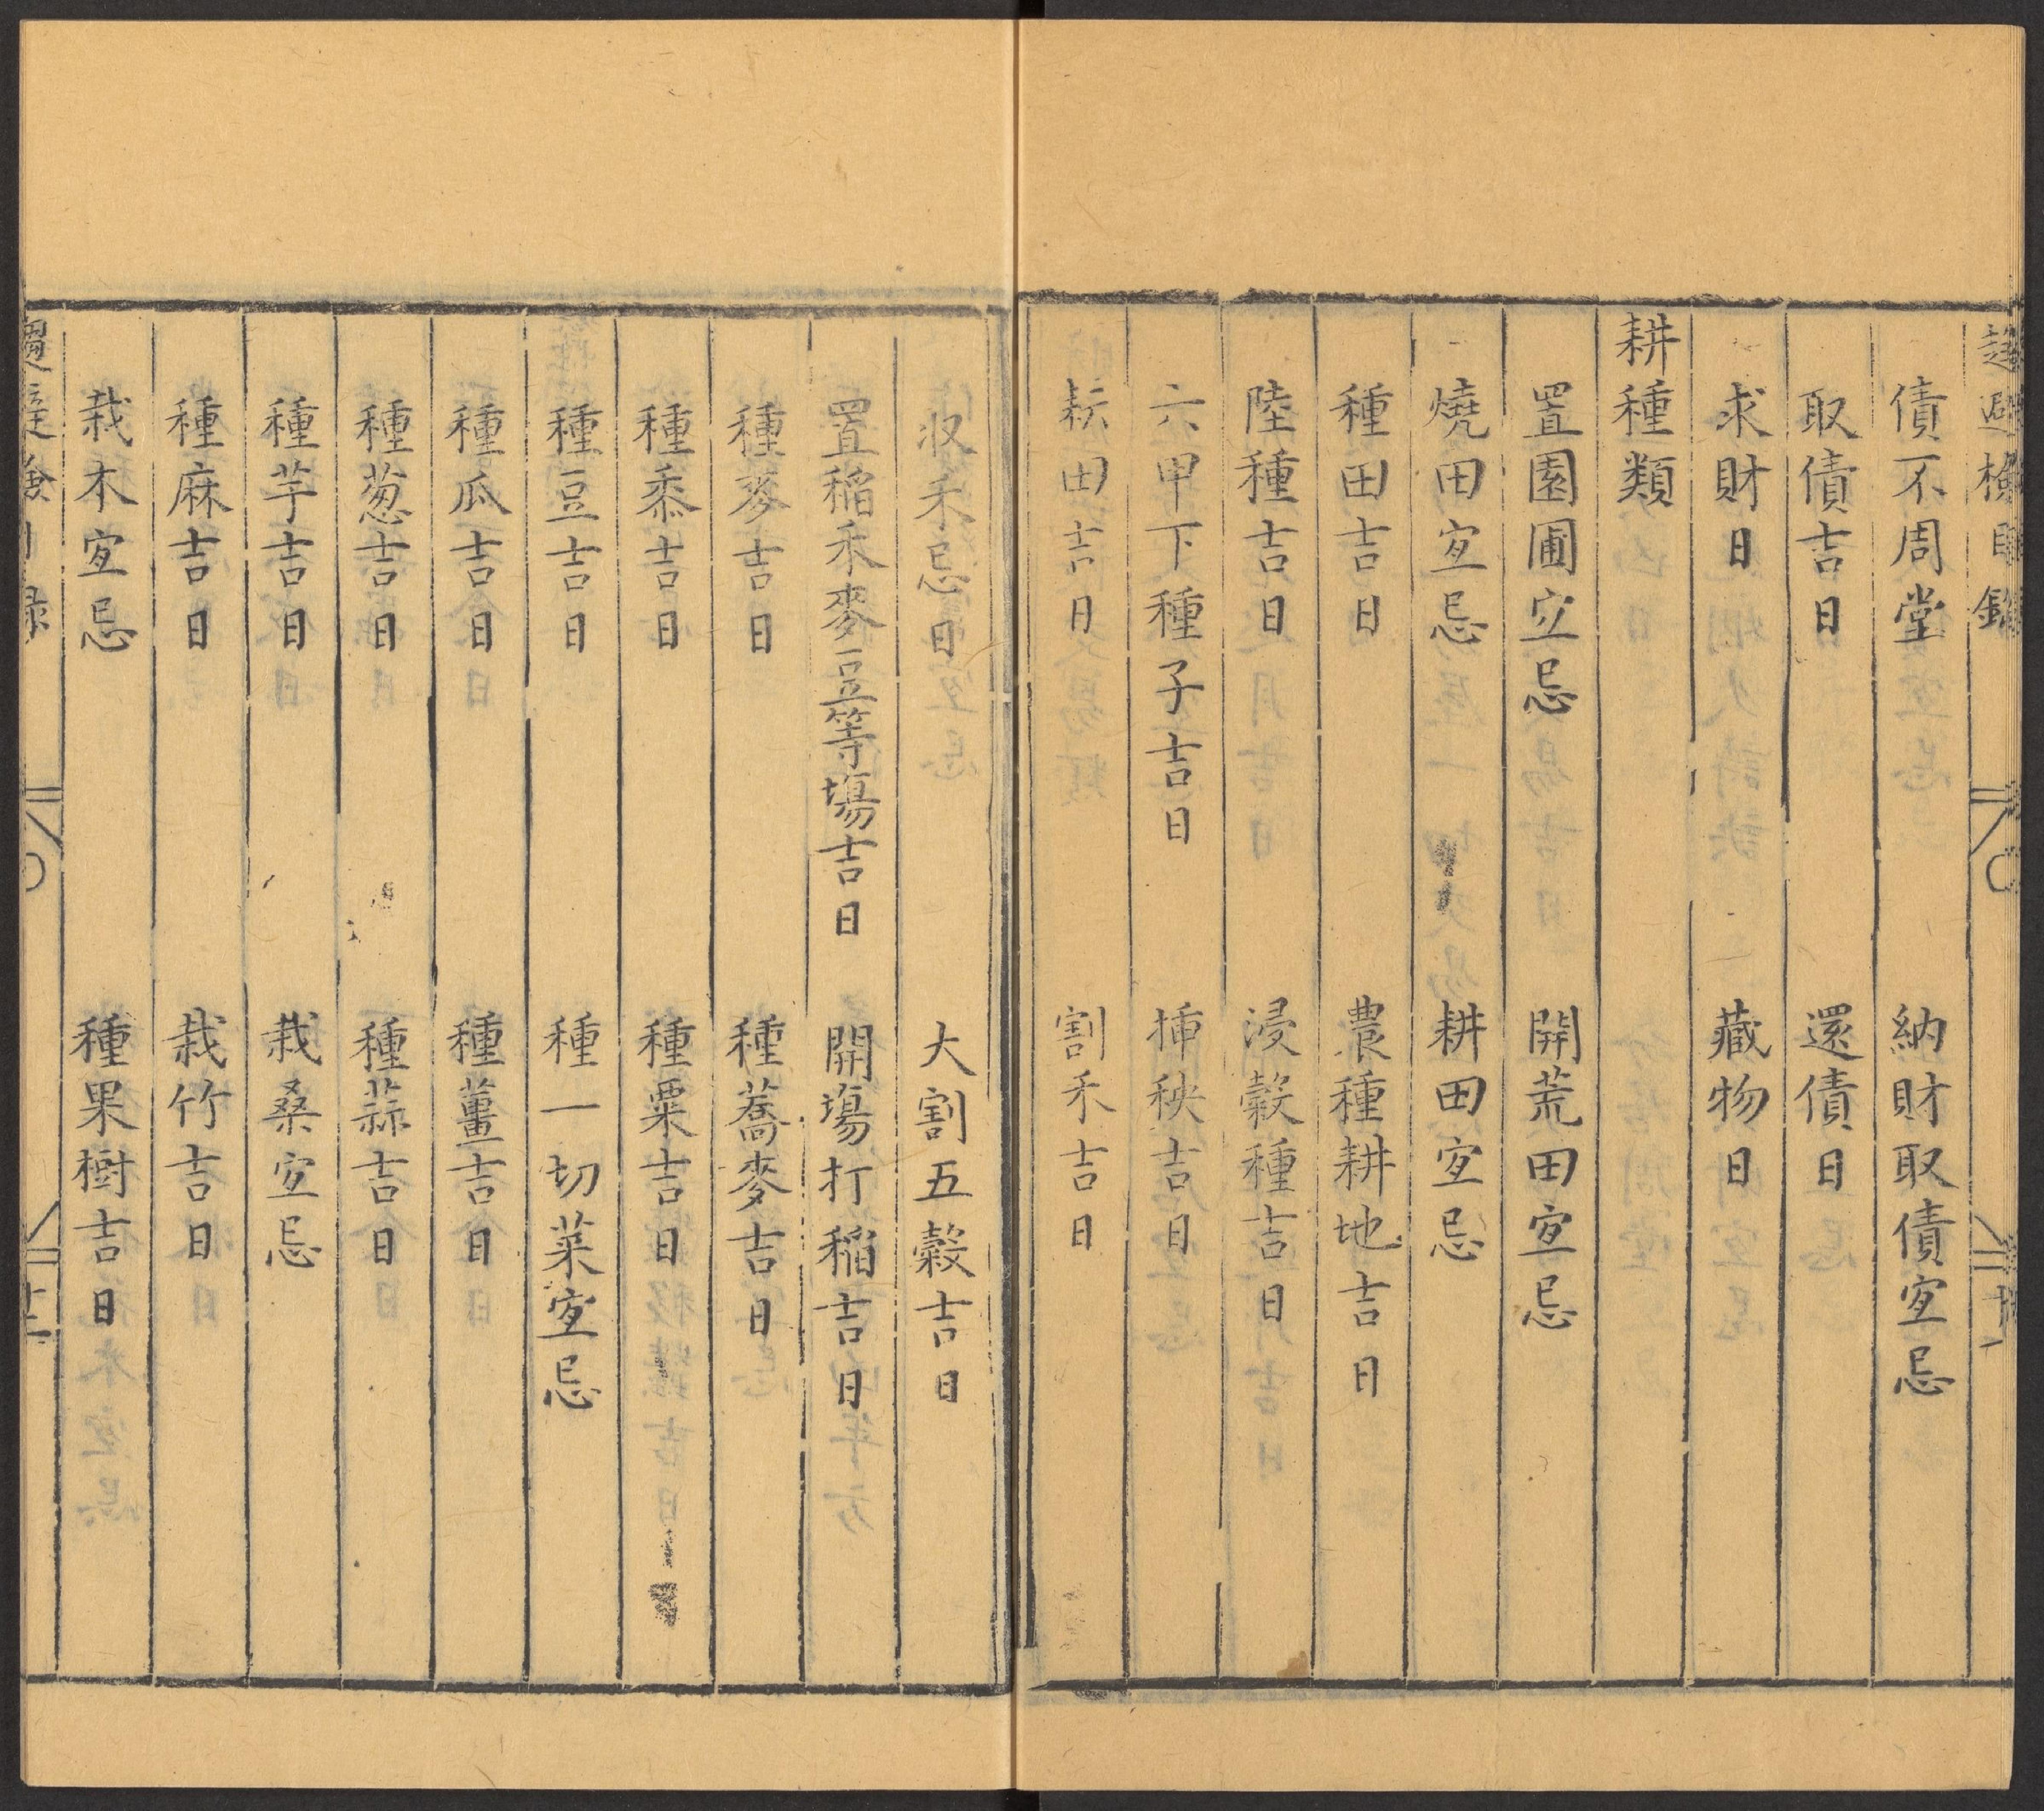 趨避檢目錄
債不周堂　納財取債宜忌
取債吉日　還債日
求財日　藏物日
耕種類
置園圃宜忌　開荒田宜忌
燒田宜忌　耕田宜忌
種田吉日　農種耕地吉日
陸種吉日　浸穀種吉日
六甲下種子吉日　揷秧吉日
耘田吉日　割禾吉日
収禾忌日　大割五穀吉日
置稻禾麥豆等塲吉日　開塲打稻吉日
種麥吉日　種蕎麥吉日
種黍吉日　種粟吉日
種豆吉日　種一切菜宜忌
種瓜吉日　種薑吉日
種葱吉日　種蒜吉日
種芋吉日　栽桑宜忌
種麻吉日　栽竹吉日
栽木宜忌　種果樹吉日